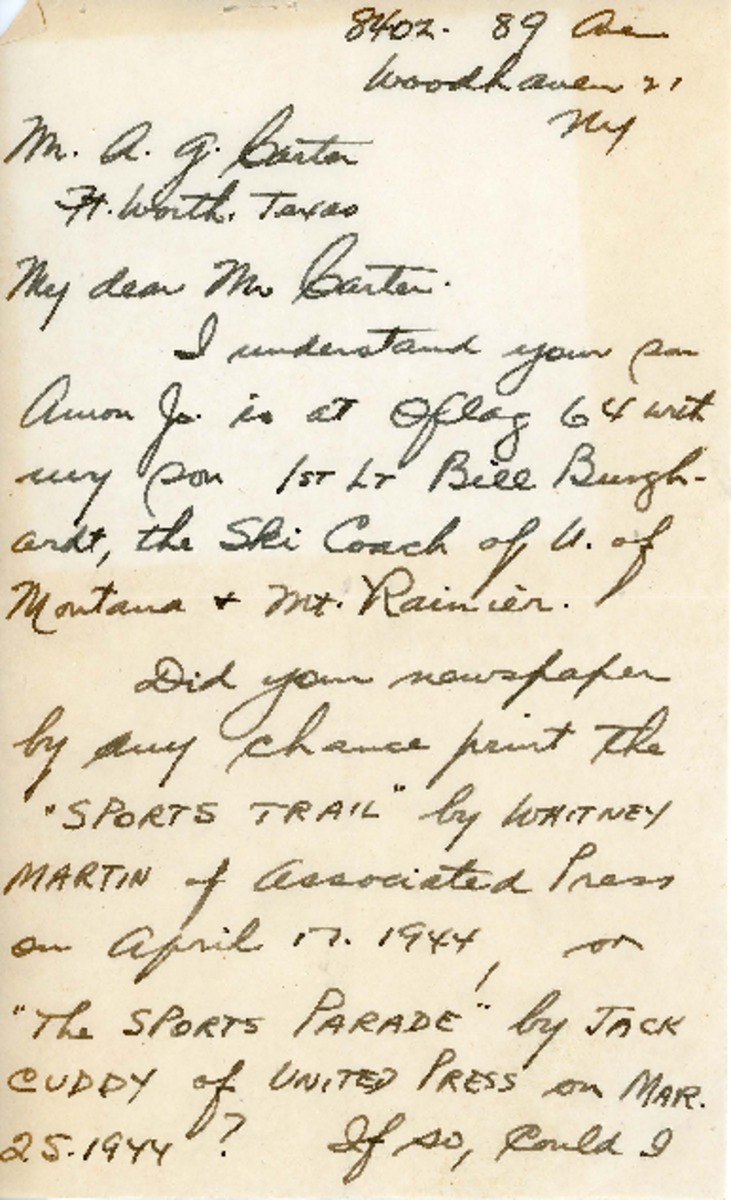 8402. 89 Ave
Woodhaven 21
NY
Mr. A. G. Carter
Ft. Worth. Texas
My dear Mr Carter.
I understand your son
Amon Jr. is at Oflag 64 with
my son 1st Lt Bill Burgh-
ardt, the Ski Coach of U. of
Montana + Mt. Rainier.
Did your newspaper
by any chance print the
"SPORTS TRAIL" by WHITNEY
MARTIN of Associated Press
on April 17. 1944, or
"The SPORTS PARADE" by JACK
CUDDY of UNITED PRESS on MAR.
25.1944? If so, could I